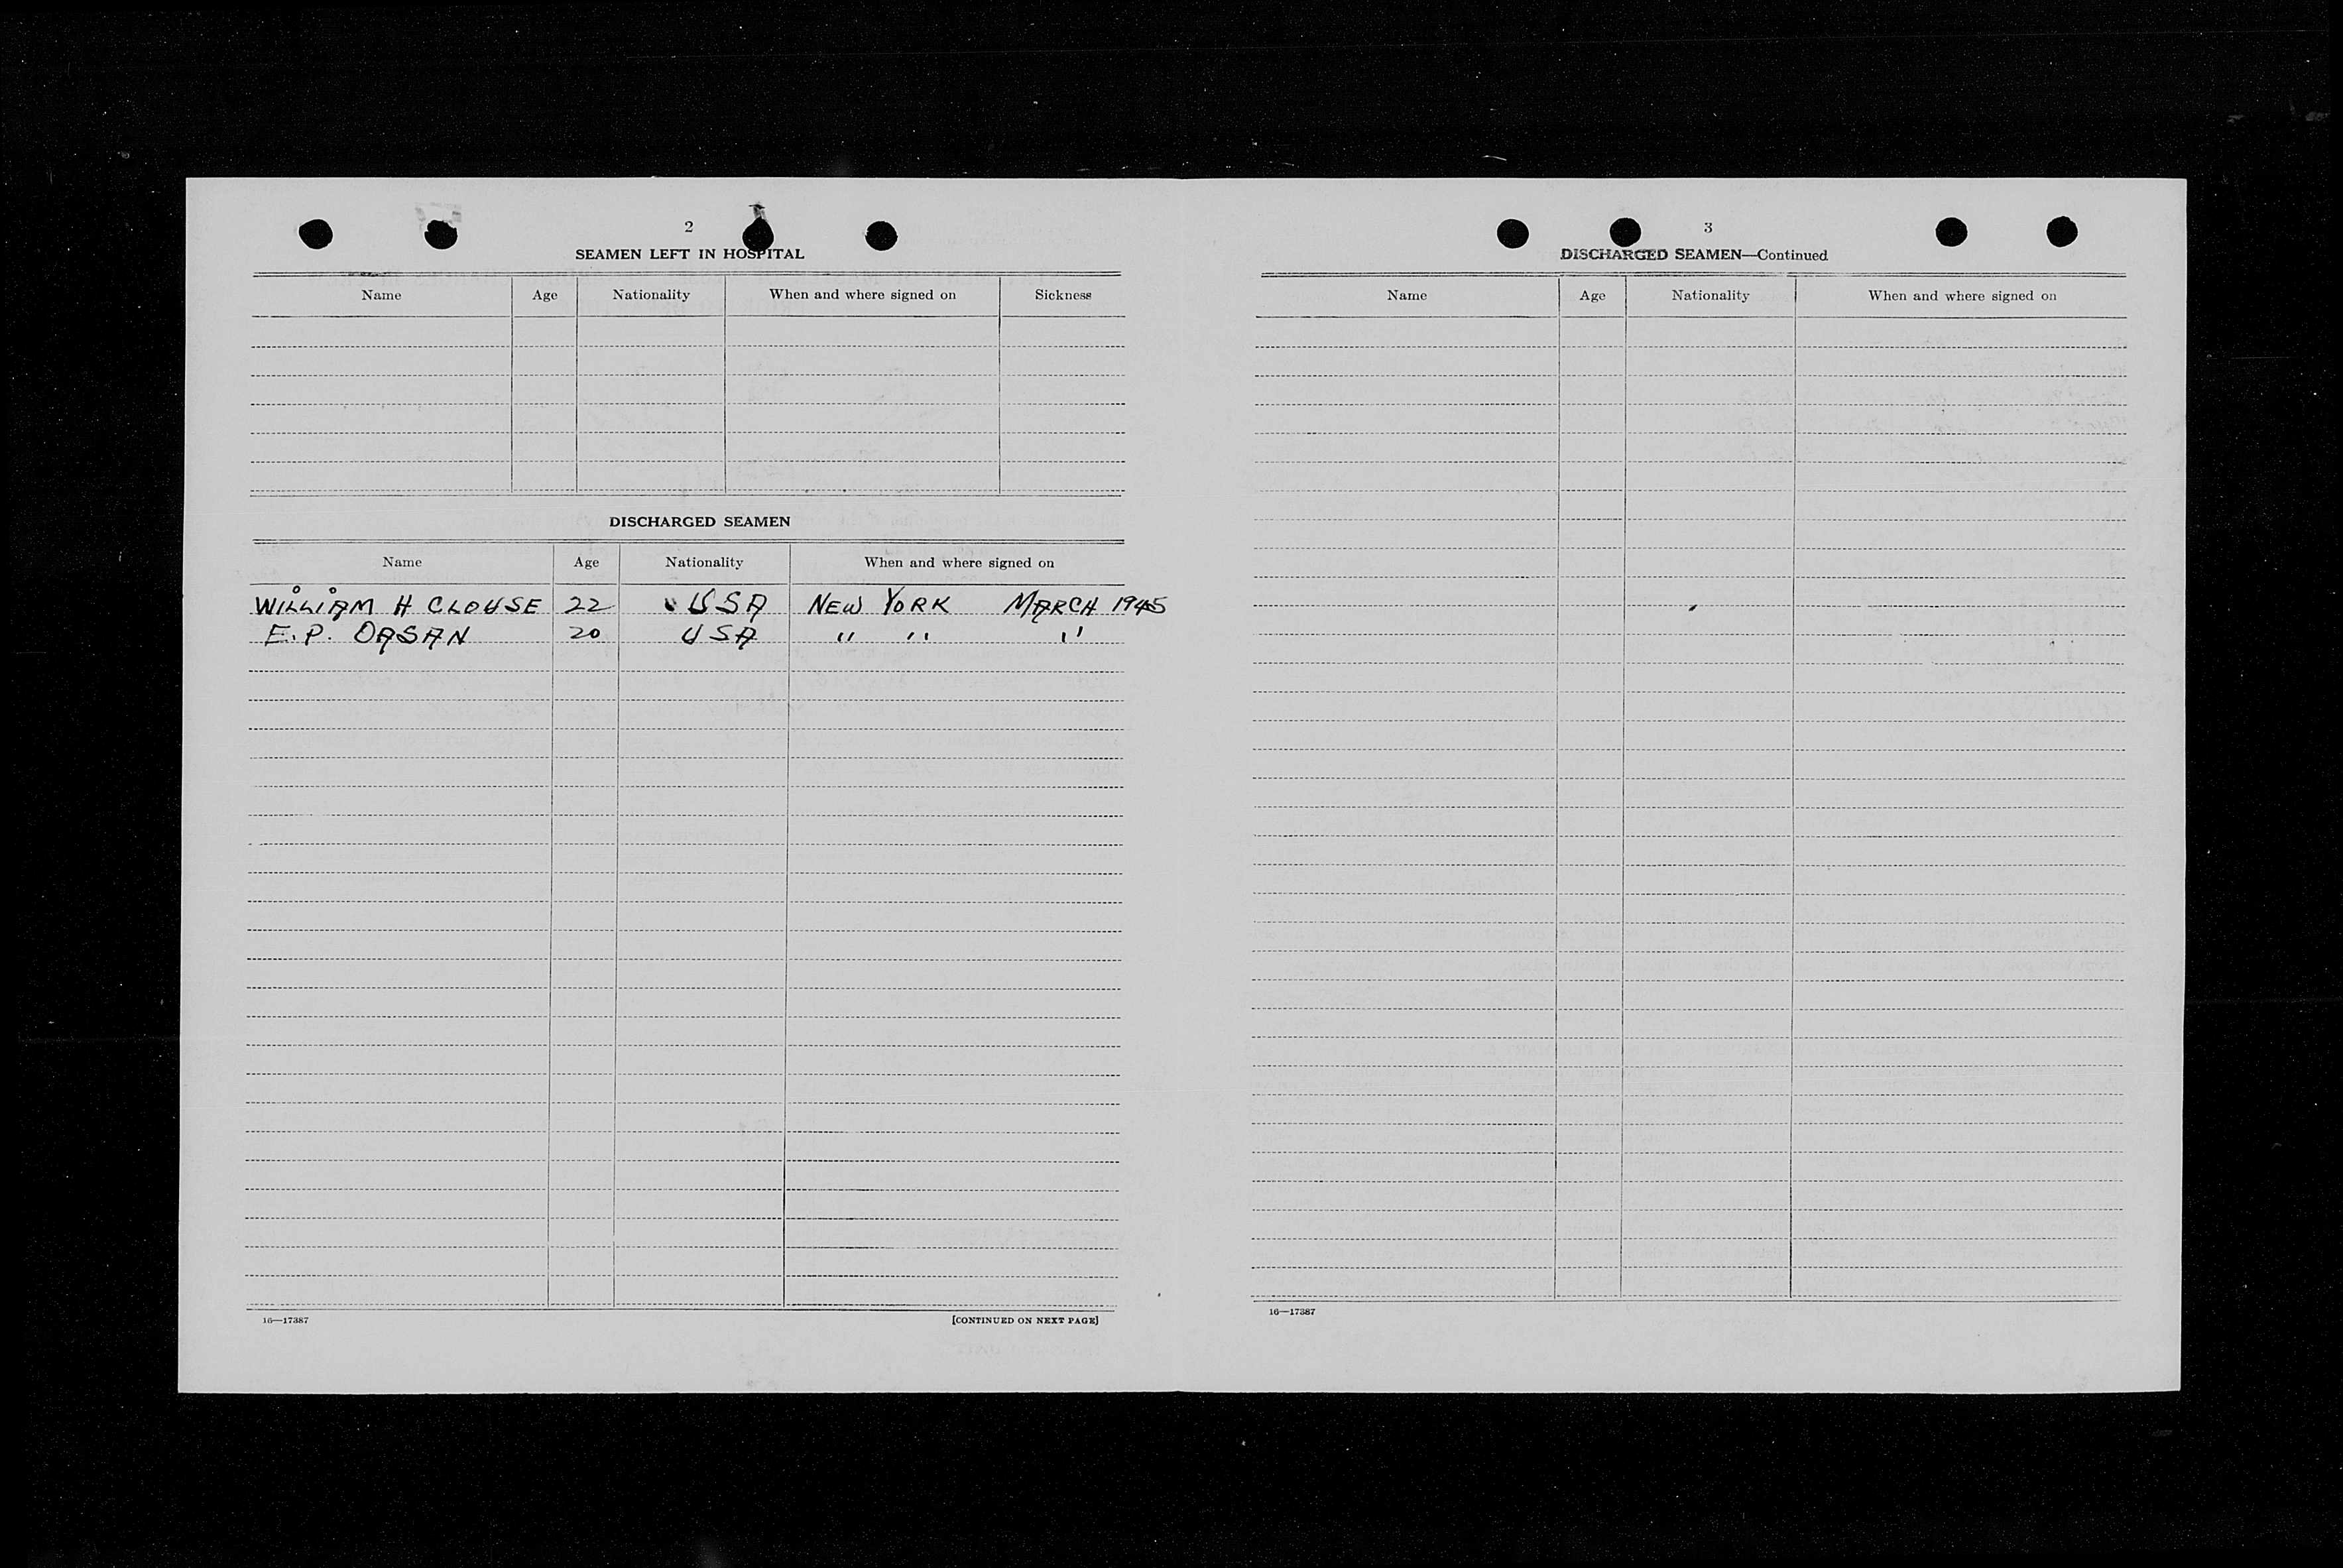 2
SEAMEN LEFT IN HOSPITAL
Name Age Nationality When and where signed on Sickness
DISCHARGED SEAMEN
Name Age Nationality When and where signed on
WILLIAM H CLOUSE 22 USA NEW YORK MARCH 1945
E.P. OASAN 20 USA " " "
16—17387 [CONTINUED ON NEXT PAGE]
3
DISCHARGED SEAMEN—Continued
Name Age Nationality When and where signed on
16—17387